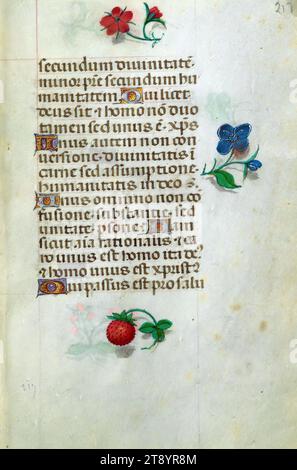 217
secundum diuinitatē·
minor p̄re secundum hu
manitatem Qui licet
deus sit & homo nō duo
tamen sed unus ē xp̄s
Unus autem non con
uersione diuinitatis ī
carnē sed assumptione
humanitatis in deo
Unus omnino non cō
fusione substantie sed
unitate persone Nam
sicut aīa rationalis & ca
ro unus est homo ita de⁹
& homo unus est xpist⁹
Qui passus est pro salu
217
alamy
Image ID: 2T8YR8M
www.alamy.com